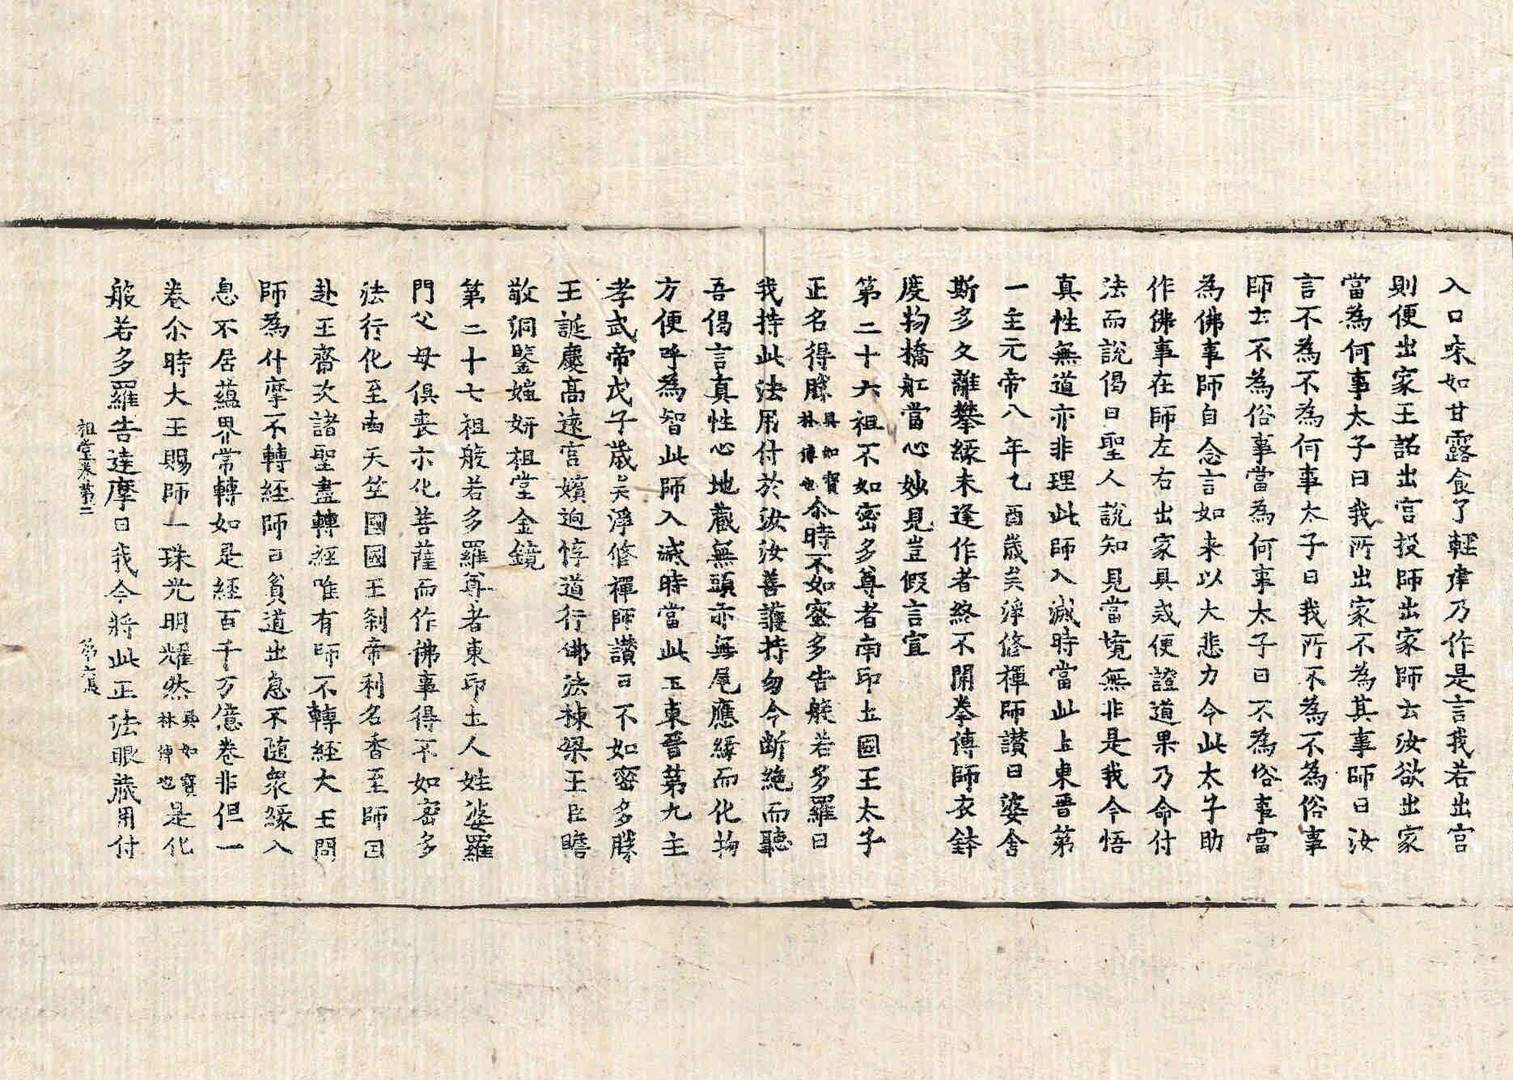 入口味如甘露食了輕便乃作是言我若出宮
則便出家王詔出宮投師出家師云汝欲出家
當為何事太子曰我所出家不為其事師曰汝
言不為不為何事太子曰我所不為不為俗事
師云不為俗事當為何事太子曰不為俗事當
為佛事師自念言如来以大悲力令此太子助
作佛事在師左右出家具戒便證道果乃命付
法而說偈曰聖人說知見當境無非是我今悟
真性無道亦非理此師入滅時當此土東晉第
一主元帝八年乙酉歲矣淨修禪師讃曰婆舍
斯多久離攀緣未逢作者終不開拳傳師衣鉢
度物橋舡當心妙見豈假言宣
第二十六祖不如密多尊者南印土國王太子
正名得勝具如寶林傳也尒時不如密多告般若多羅曰
我持此法用付於汝汝善護持勿令断絶而聽
吾偈言真性心地藏無頭亦無尾應緣而化物
方便呼為智此師入滅時當此土東晉第九主
孝武帝戊子歲矣淨修禪師讃曰不如密多勝
王誕慶高遠言嬪逈惇道行佛法棟梁王臣瞻
敬洞鑒媸妍祖堂金鏡
第二十七祖般若多羅尊者東印土人姓婆羅
門父母俱喪亦化菩薩而作佛事得不如密多
法行化至南天竺國國王制帝利名香至師因
赴王齋次諸聖盡轉經唯有師不轉經大王問
師為什摩不轉経師曰貧道出息不随衆緣入
息不居蘊界常轉如是經百千万億卷非但一
卷尒時大王賜師一珠光明耀然具如寶林傳也是化
般若多羅告達摩曰我今將此正法眼藏用付
祖堂卷第二
第六張